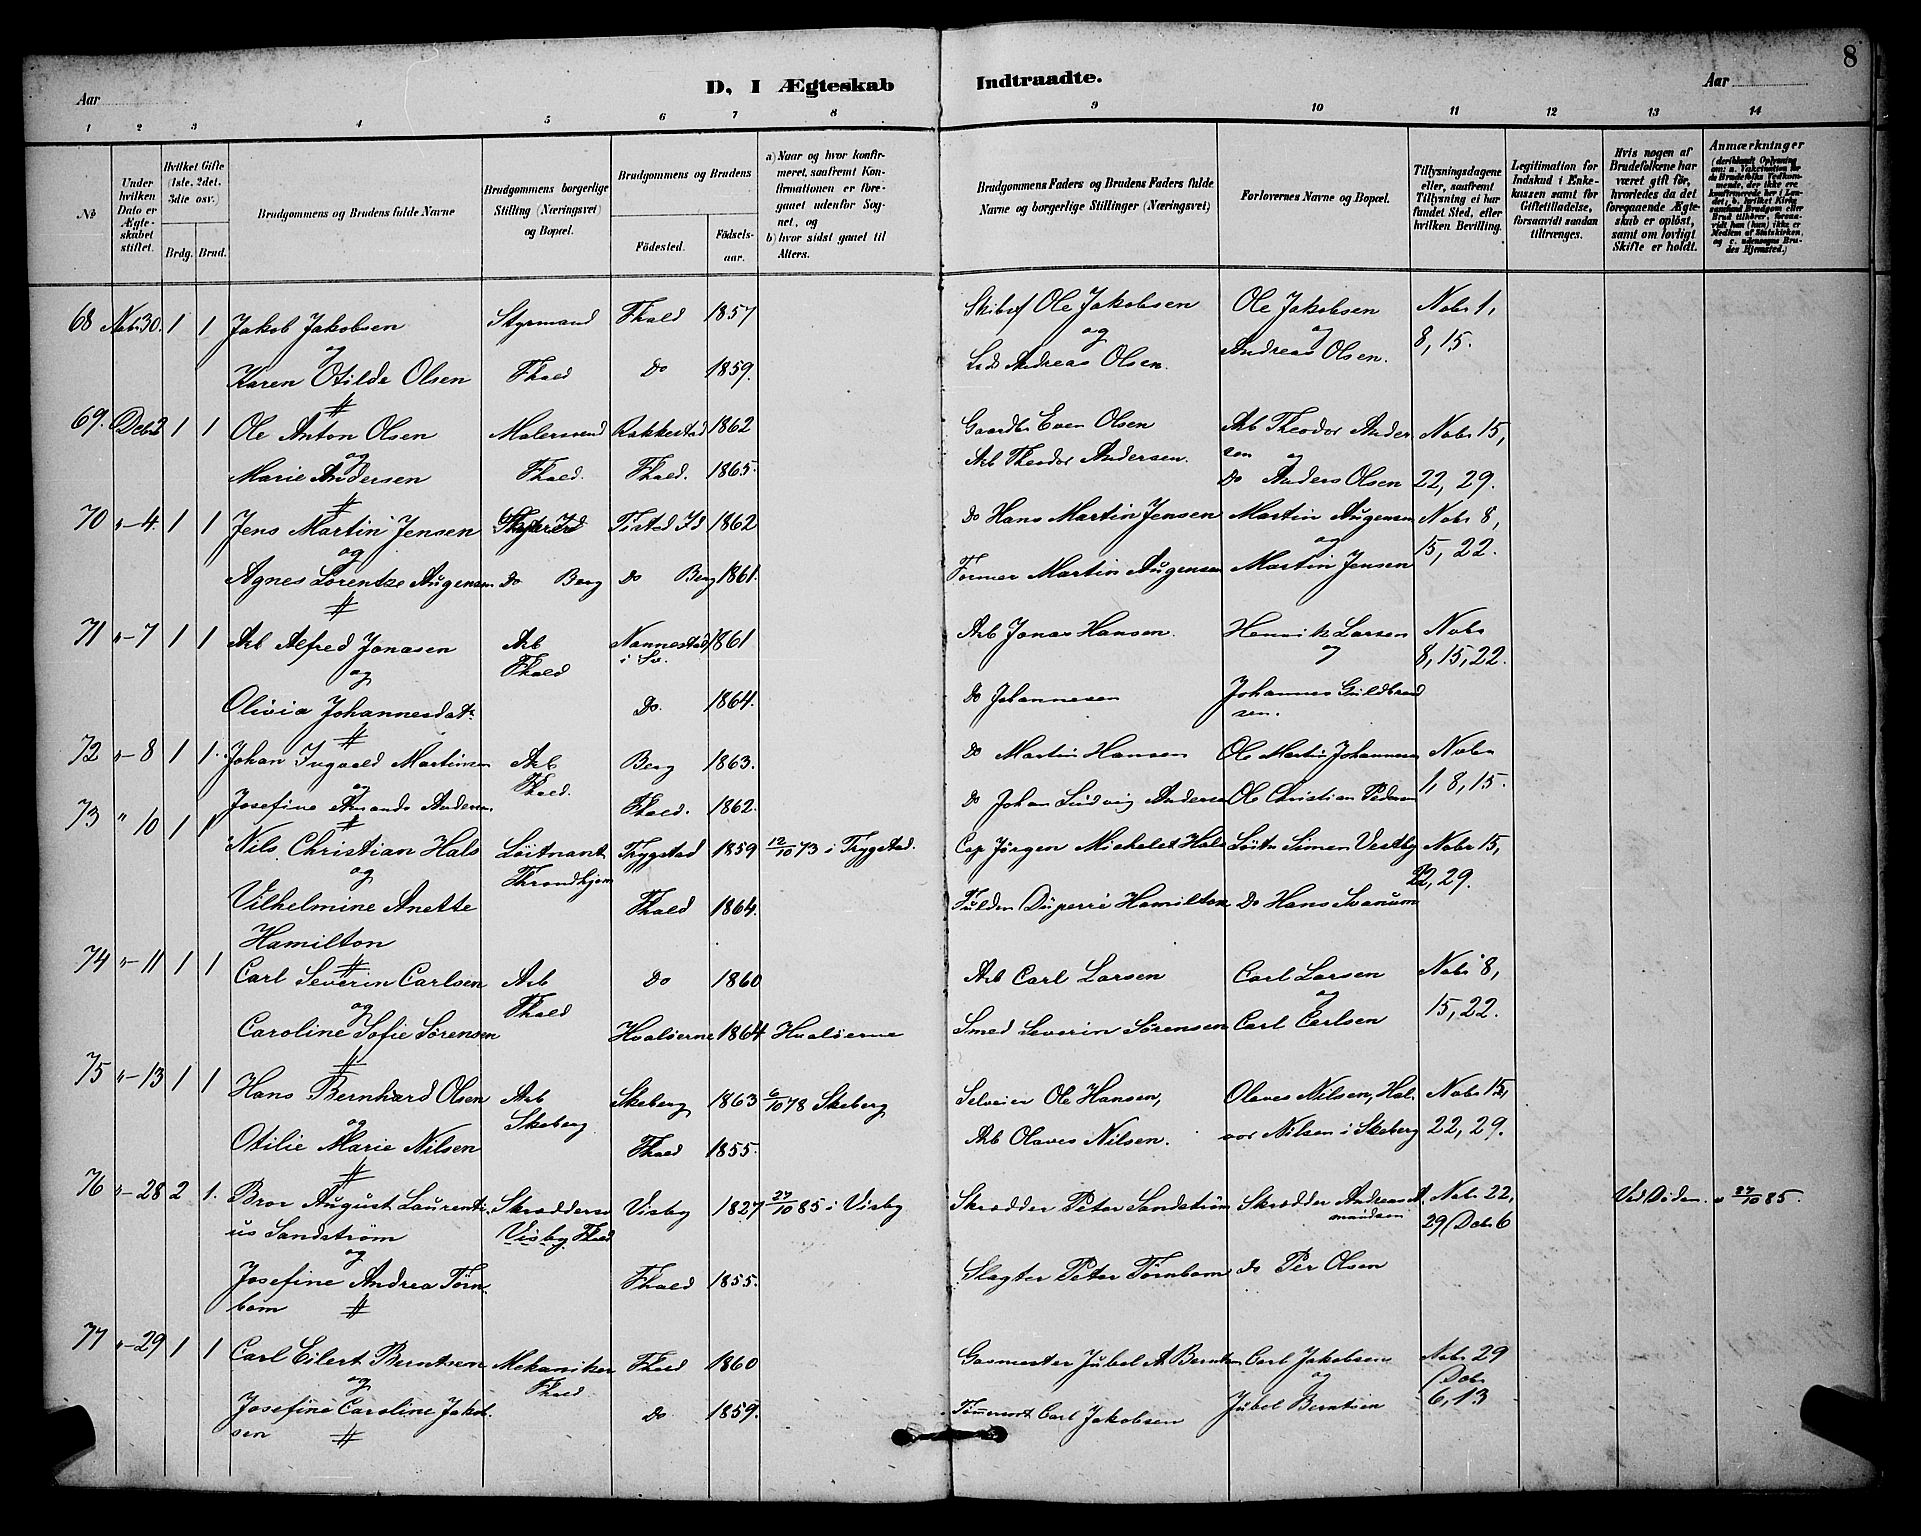 8
D, I Ægteskab Indtraadte.
Aar
Aar
1 2 3 4 5 6 7 8 9 10 11 12 13 14
No
Under hvilken Dato er Ægteskabet stiftet.
Hvilket Gifte (1ste. 2det. 3die osv.)
Brdg. Brud.
Brudgommens og Brudens fulde Navne
Brudgommens borgerlige Stilling (Næringsvei) og Bopæl.
Brudgommens og Brudens
Fødested.
Fødselsaar.
a) Naar og hvor konfirmeret, saafremt Konfirmationen er foregaaet udenfor Sognet, og
b) hvor sidst gaaet til Alters.
Brudgommens Faders og Brudens Faders fulde Navne og borgerlige Stillinger (Næringsvei)
Forlovernes Navne og Bopæl.
Tillysningsdagene eller, saafremt Tillysning ei har fundet Sted, efter hvilken Bevilling.
Legitimation for Indskud i Enkekassen samt for Giftetilladelse, forsaavidt saadan tiltrænges.
Hvis nogen af Brudefolkene har været gift før, hvorledes da det foregaaende Ægteskab er opløst, samt om lovligt Skifte er holdt.
Anmærkninger
68 Nobr 30. 1 1 Jakob Jakobsen Styrmand Fhald 1857 Skibsf Ole Jakobsen Ole Jakobsen Nobr 1,
og og og 8, 15.
Karen Otilde Olsen Fhald Do 1859. Andreas Olsen. Andreas Olsen.
69. Debr 2 1 1 Ole Anton Olsen Malersvend Rakkestad 1862 Gaardbr Even Olsen Arb Theodor Ander Nobr 15,
og sen og
Marie Andersen Fhald. Fhald. 1865. Arb Theodor Andersen. Do Anders Olsen 22, 29.
70 "-4. 1 1 Jens Martin Jensen Tistedal Id 1862 Do Hans Martin Jensen Martin Augensen Nobr 8,
og og 15, 22.
Agnes Lorentze Augensen Do Berg Do Berg 1861. Former Martin Augensen Martin Jensen
71 "-7 1 1 Arb Alfred Jonasen Arb Nannestad 1861 Arb Jonas Hansen. Henrik Larsen Nobr
og Fhald i Sv. og 8, 15, 22.
Olivia Johannesdatr Do. 1864. Do Johannesen Johannes Guldbrand
sen.
72 "-8 1 1. Johan Ingvald Martinsen Arb Berg 1863. Do Martin Hansen Ole Martin Johannesen Nobr
og Fhald. 1, 8, 15.
Josefine Amanda Andersen Fhald. 1862. Do Johan Ludvig Andersen Ole Christian Pedersen
73 " 10 1 1 Nils Christian Hals Løitnant Trygstad 1859 12/10 73 i Trygstad. Cap Jørgen Michelet Hals Løitn Simen Vestby Nobr 15,
og Throndhjem 22, 29.
Vilhelmine Anette Fhald 1864. Duperré Hamilton Do Hans Svanum
Hamilton
74 "-11 1 1 Carl Severin Carlsen Arb Do 1860 Arb Carl Larsen Carl Larsen Nobr 8,
og Fhald og 15, 22.
Caroline Sofie Sørensen Hvaløerne 1864 Hvaløerne Smed Severin Sørensen Carl Carlsen
75 "-13 1 1 Hans Bernhard Olsen Arb Skeberg 1863 6/10 78 Skeberg Selveier Ole Hansen, Olaves Nilsen, Hal Nobr 15,
og Skeberg
Otilie Marie Nilsen Fhald 1855. Arb Olaves Nilsen. vor Nilsen i Skeberg 22, 29.
76 "-28 2 1. Bror August Laurenti Skrædderm Visby 1827 27/10 85 i Visby Skrædder Peter Sandstrøm Skrædder Andreas A. Nobr 22, Ved Døden 27/10 85.
us Sandstrøm Visby Fhald mundsen 29, Debr 6
og
Josefine Andrea Törn Fhald 1855. Slagter Peter Törnbom Do Per Olsen
bom
77 "-29 1 1 Carl Eilert Berntsen Mekaniker Fhald 1860 Gasmester Jubel A Berntsen Carl Jakobsen Nobr 29
og Fhald og Debr
Josefine Caroline Jakob Do 1859. Carl Jakobsen Jubel Berntsen 6, 13
sen